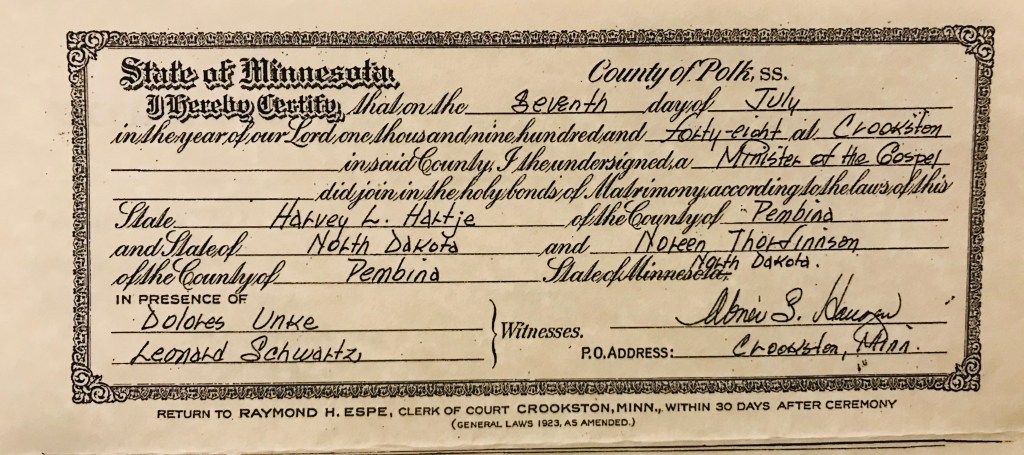 State of Minnesota, County of Polk, SS.
I Hereby Certify, that on the Seventh day of July
in the year of our Lord, one thousand nine hundred and forty-eight at Crookston
in said County, I the undersigned, a Minister of the Gospel
did join in the holy bonds of Matrimony, according to the laws of this
State Harvey L. Hartje of the County of Pembina
and State of North Dakota and Noreen Thorfinnson
of the County of Pembina State of Minnesota, North Dakota.
IN PRESENCE OF
Dolores Unke
Leonard Schwartz
Witnesses.
P.O. ADDRESS: Crookston, Minn.
RETURN TO RAYMOND H. ESPE, CLERK OF COURT CROOKSTON, MINN., WITHIN 30 DAYS AFTER CEREMONY
(GENERAL LAWS 1923, AS AMENDED.)